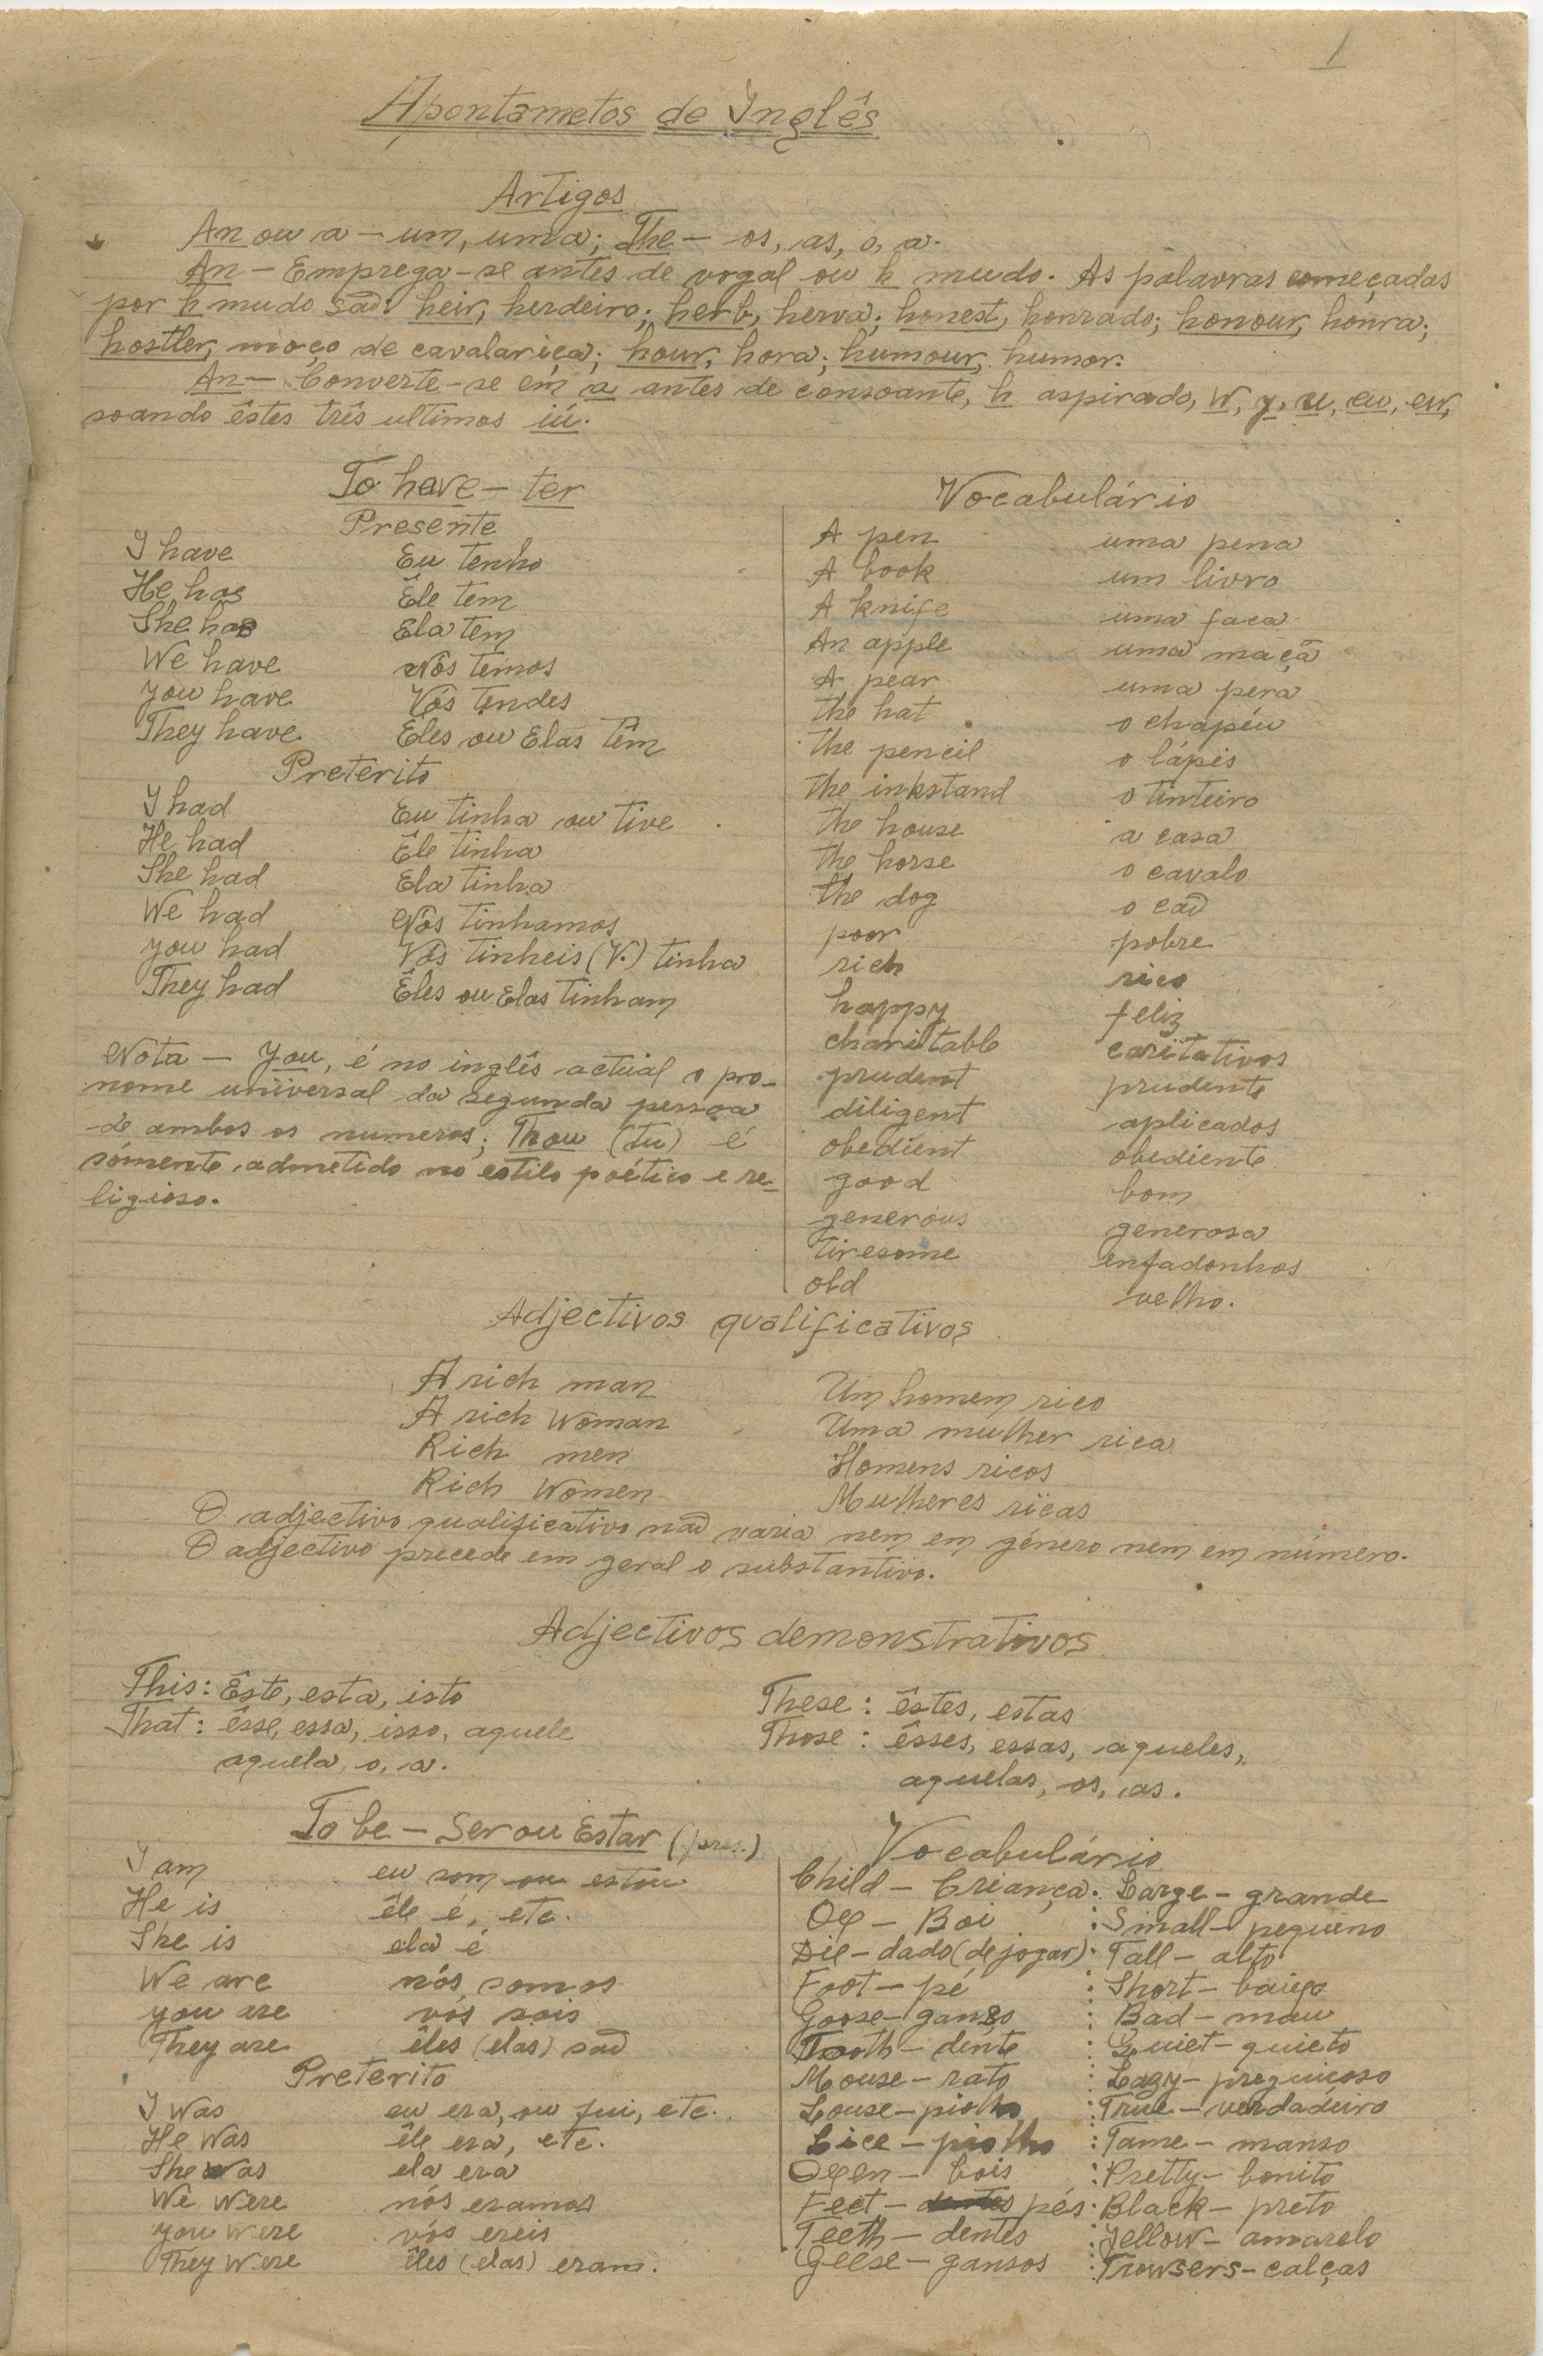 1
Apontametos de Inglês
Artigos
An ou a — um, uma; The — os, as, o, a.
An — Emprega-se antes de vogal ou h mudo. As palavras começadas
por h mudo são: heir, herdeiro; herb, herva; honest, honrado; honour, honra;
hostler, moço de cavalariça; hour, hora; humour, humor.
An — Converte-se em a antes de consoante, h aspirado, w, y, u, eu, ew,
soando êstes três ultimos iú.
To have — ter
Presente
I have Eu tenho
He has Êle tem
She has Ela tem
We have Nós temos
You have Vós tendes
They have Êles ou Elas têm
Preterito
I had Eu tinha ou tive
He had Êle tinha
She had Ela tinha
We had Nós tinhamos
you had Vós tinheis (V.) tinha
They had Êles ou Elas tinham
Nota — You, é no inglês actual o pro-
nome universal da segunda pessoa
de ambos os numeros; Thou (tu) é
sómente admetido no estilo poético e re-
ligioso.
Vocabulário
A pen uma pena
A book um livro
A knife uma faca
An apple uma maçã
A pear uma pera
the hat o chapéu
the pencil o lápis
the inkstand o tinteiro
the house a casa
the horse o cavalo
the dog o cão
poor pobre
rich rico
happy feliz
charitable caritativos
prudent prudente
diligent aplicados
obedient obediente
good bom
generous generosa
tiresome enfadonhos
old velho.
Adjectivos qualificativos
A rich man Um homem rico
A rich woman Uma mulher rica
Rich men Homens ricos
Rich women Mulheres ricas
O adjectivo qualificativo não varia nem em género nem em número.
O adjectivo precede em geral o substantivo.
Adjectivos demonstrativos
This: Êste, esta, isto
That: êsse, essa, isso, aquele
aquela, o, a.
These: êstes, estas
Those: êsses, essas, aqueles,
aquelas, os, as.
To be — Ser ou Estar (pres.)
I am eu som ou estou
He is êle é, etc.
She is ela é
We are nós somos
you are vós sois
They are êles (elas) são
Preterito
I was eu era, ou fui, etc.
He was êle era, etc.
She was ela era
We were nós eramos
you were vós ereis
They were êles (elas) eram.
Vocabulário
Child — Criança: Large — grande
Ox — Boi : Small — pequeno
Die — dado (de jogar): Tall — alto
Foot — pé : Short — baixo
Goose — ganso : Bad — mau
Tooth — dente : Quiet — quieto
Mouse — rato : Lazy — preguiçoso
Louse — piolho : True — verdadeiro
Lice — piolho : Tame — manso
Oxen — bois : Pretty — bonito
Feet — dentes pés : Black — preto
Teeth — dentes : Yellow — amarelo
Geese — gansos : Trowsers — calças